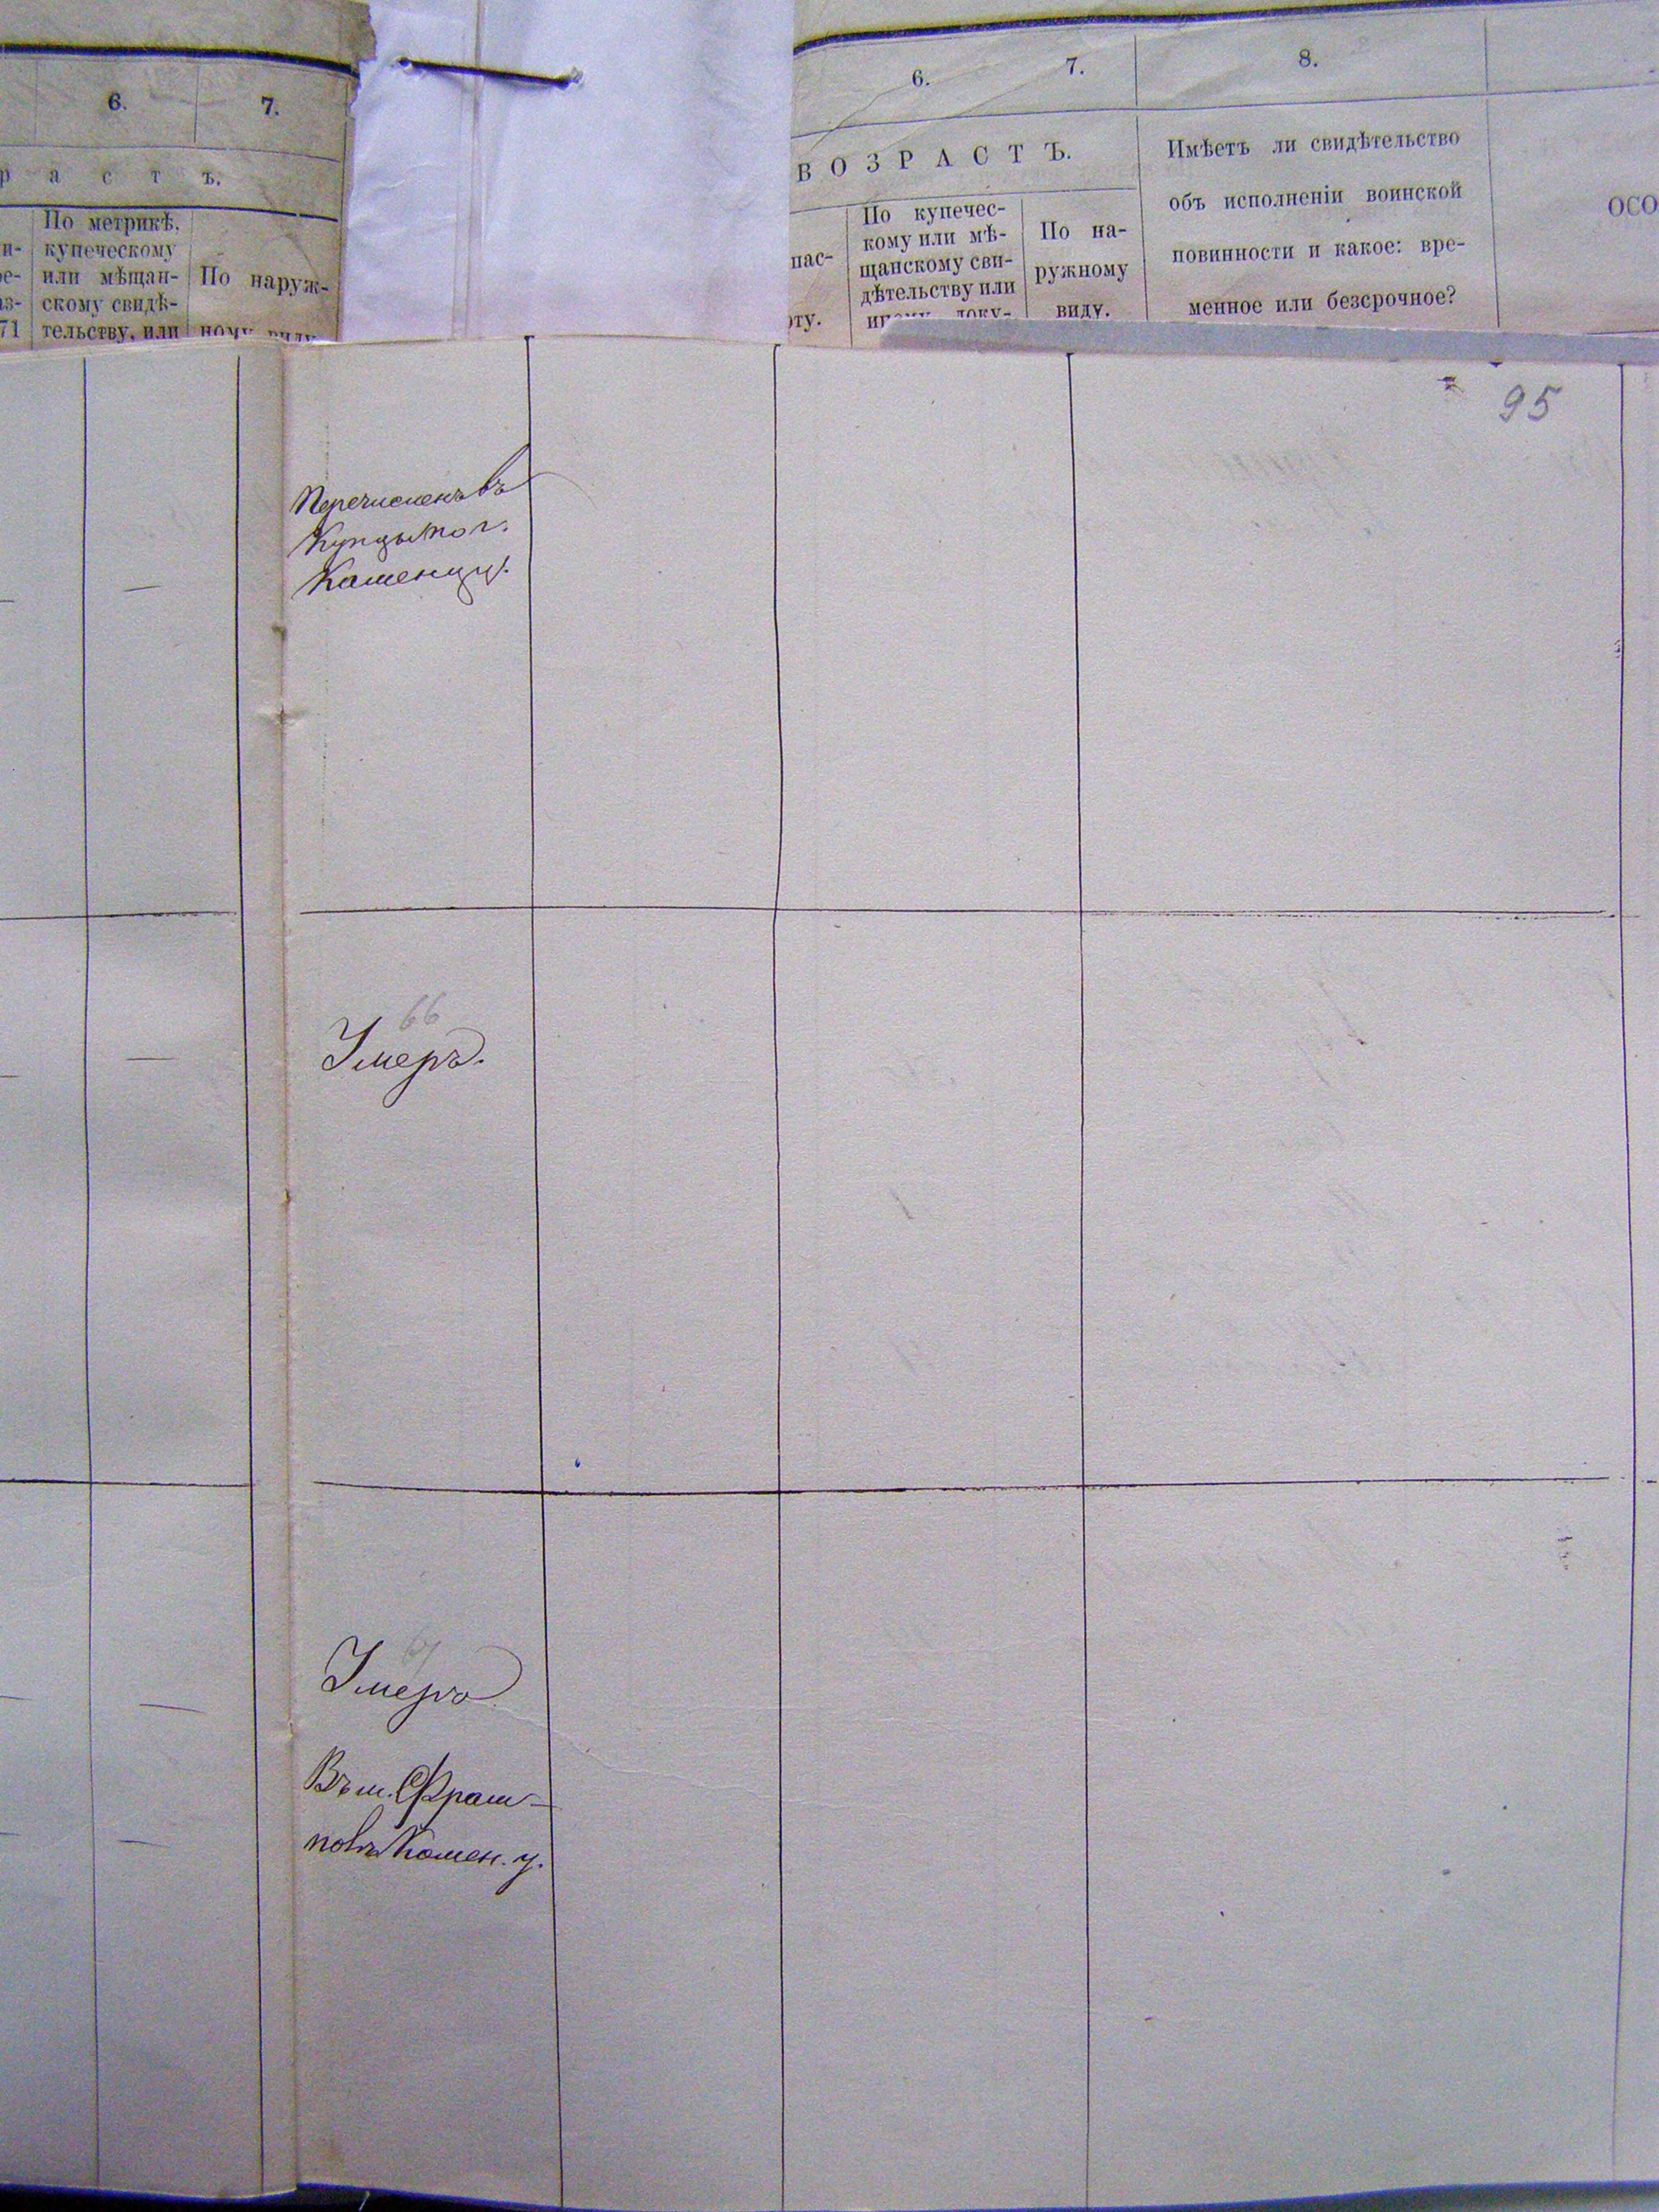 6. 7.
р а с т ъ.
По метрикѣ,
купеческому
или мѣщан-
скому свидѣ-
тельству, или
По наруж-
ному виду
71
6. 7. 8.
ВОЗРАСТЪ.
пас-
рту.
По купечес-
кому или мѣ-
щанскому сви-
дѣтельству или
иному доку-
По на-
ружному
виду.
Имѣетъ ли свидѣтельство
объ исполненіи воинской
повинности и какое: вре-
менное или безсрочное?
ОСО
95
Перечисленъ въ
Купцы по г.
Каменцу.
66
Умеръ.
67
Умеръ
Въ м. Фрам-
полъ Камен. у.